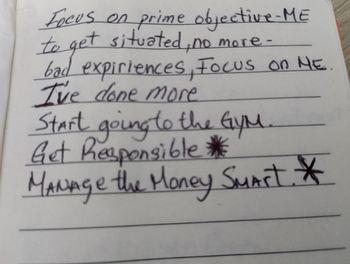 Focus on prime objective-ME
to get situated, no more -
bad expiriences, Focus on ME.
I've done more
Start going to the GYM.
Get Responsible *
MANAGE the Money SMART. *